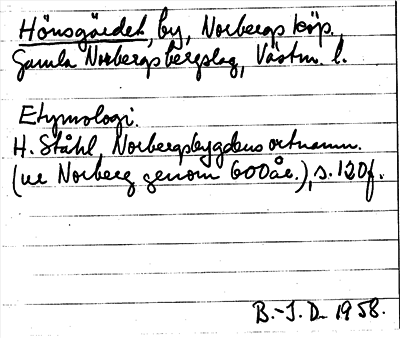 Hönsgärdet, by, Norbergs köp.
Gamla Norbergsbergslag, Västm. l.
Etymologi.
H. Ståhl, Norbergsbygdens ortnamn.
(ur Norberg genom 600 år.), s. 120f.
B.-J. D. 1958.